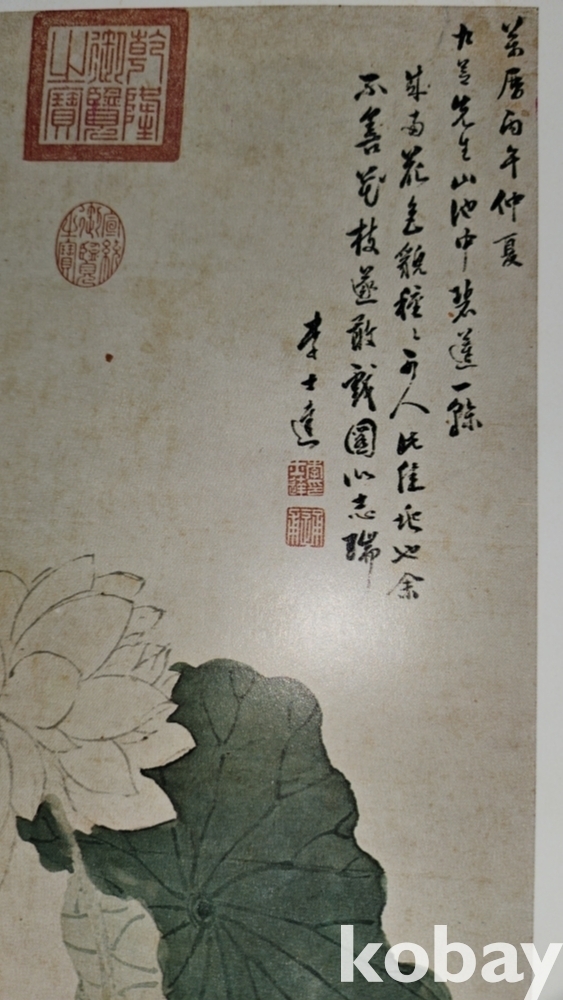 萬曆丙午仲夏
九先生山池中碧蓮一
成兩花色貌種種可人此佳兆也余
不善花枝遂敢戲圖以志瑞
李士達
乾隆御覽之寶
宣統御覽之寶
kobay